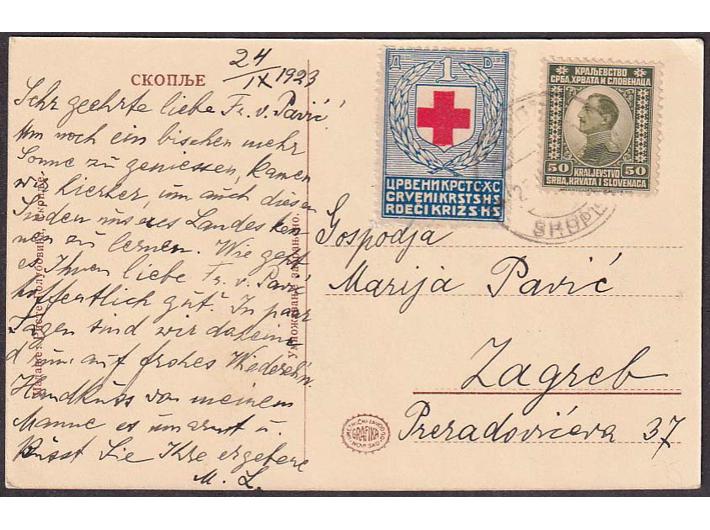 СКОПЉЕ
24/IX 1923
Sehr geehrte liebe Fr. v. Pavić!
Um noch ein bischen mehr
Sonne zu geniessen, kamen
wir hierher, um auch diesen
Süden unseres Landes ken-
nen zu lernen. Wie geht
es Ihnen liebe Fr. v. Pavić
hoffentlich gut? In paar
Tagen sind wir daheim
d'rum auf frohes Wiederseh'n.
Handkuss von meinem
Manne es umarmt u.
küsst Sie Ihre ergebene
M. L.
Умножавање забрањено.
Д 1 D
ЦРВЕНИ КРСТ С.Х.С
CRVENI KRST S.H.S
RDEČI KRIŽ S.H.S
КРАЉЕВСТВО
СРБА, ХРВАТА И СЛОВЕНАЦА
50 KRALJEVSTVO 50
SRBA, HRVATA I SLOVENACA
Gospodja
Marija Pavić
Zagreb
Preradovićeva 37
GRAFIKA